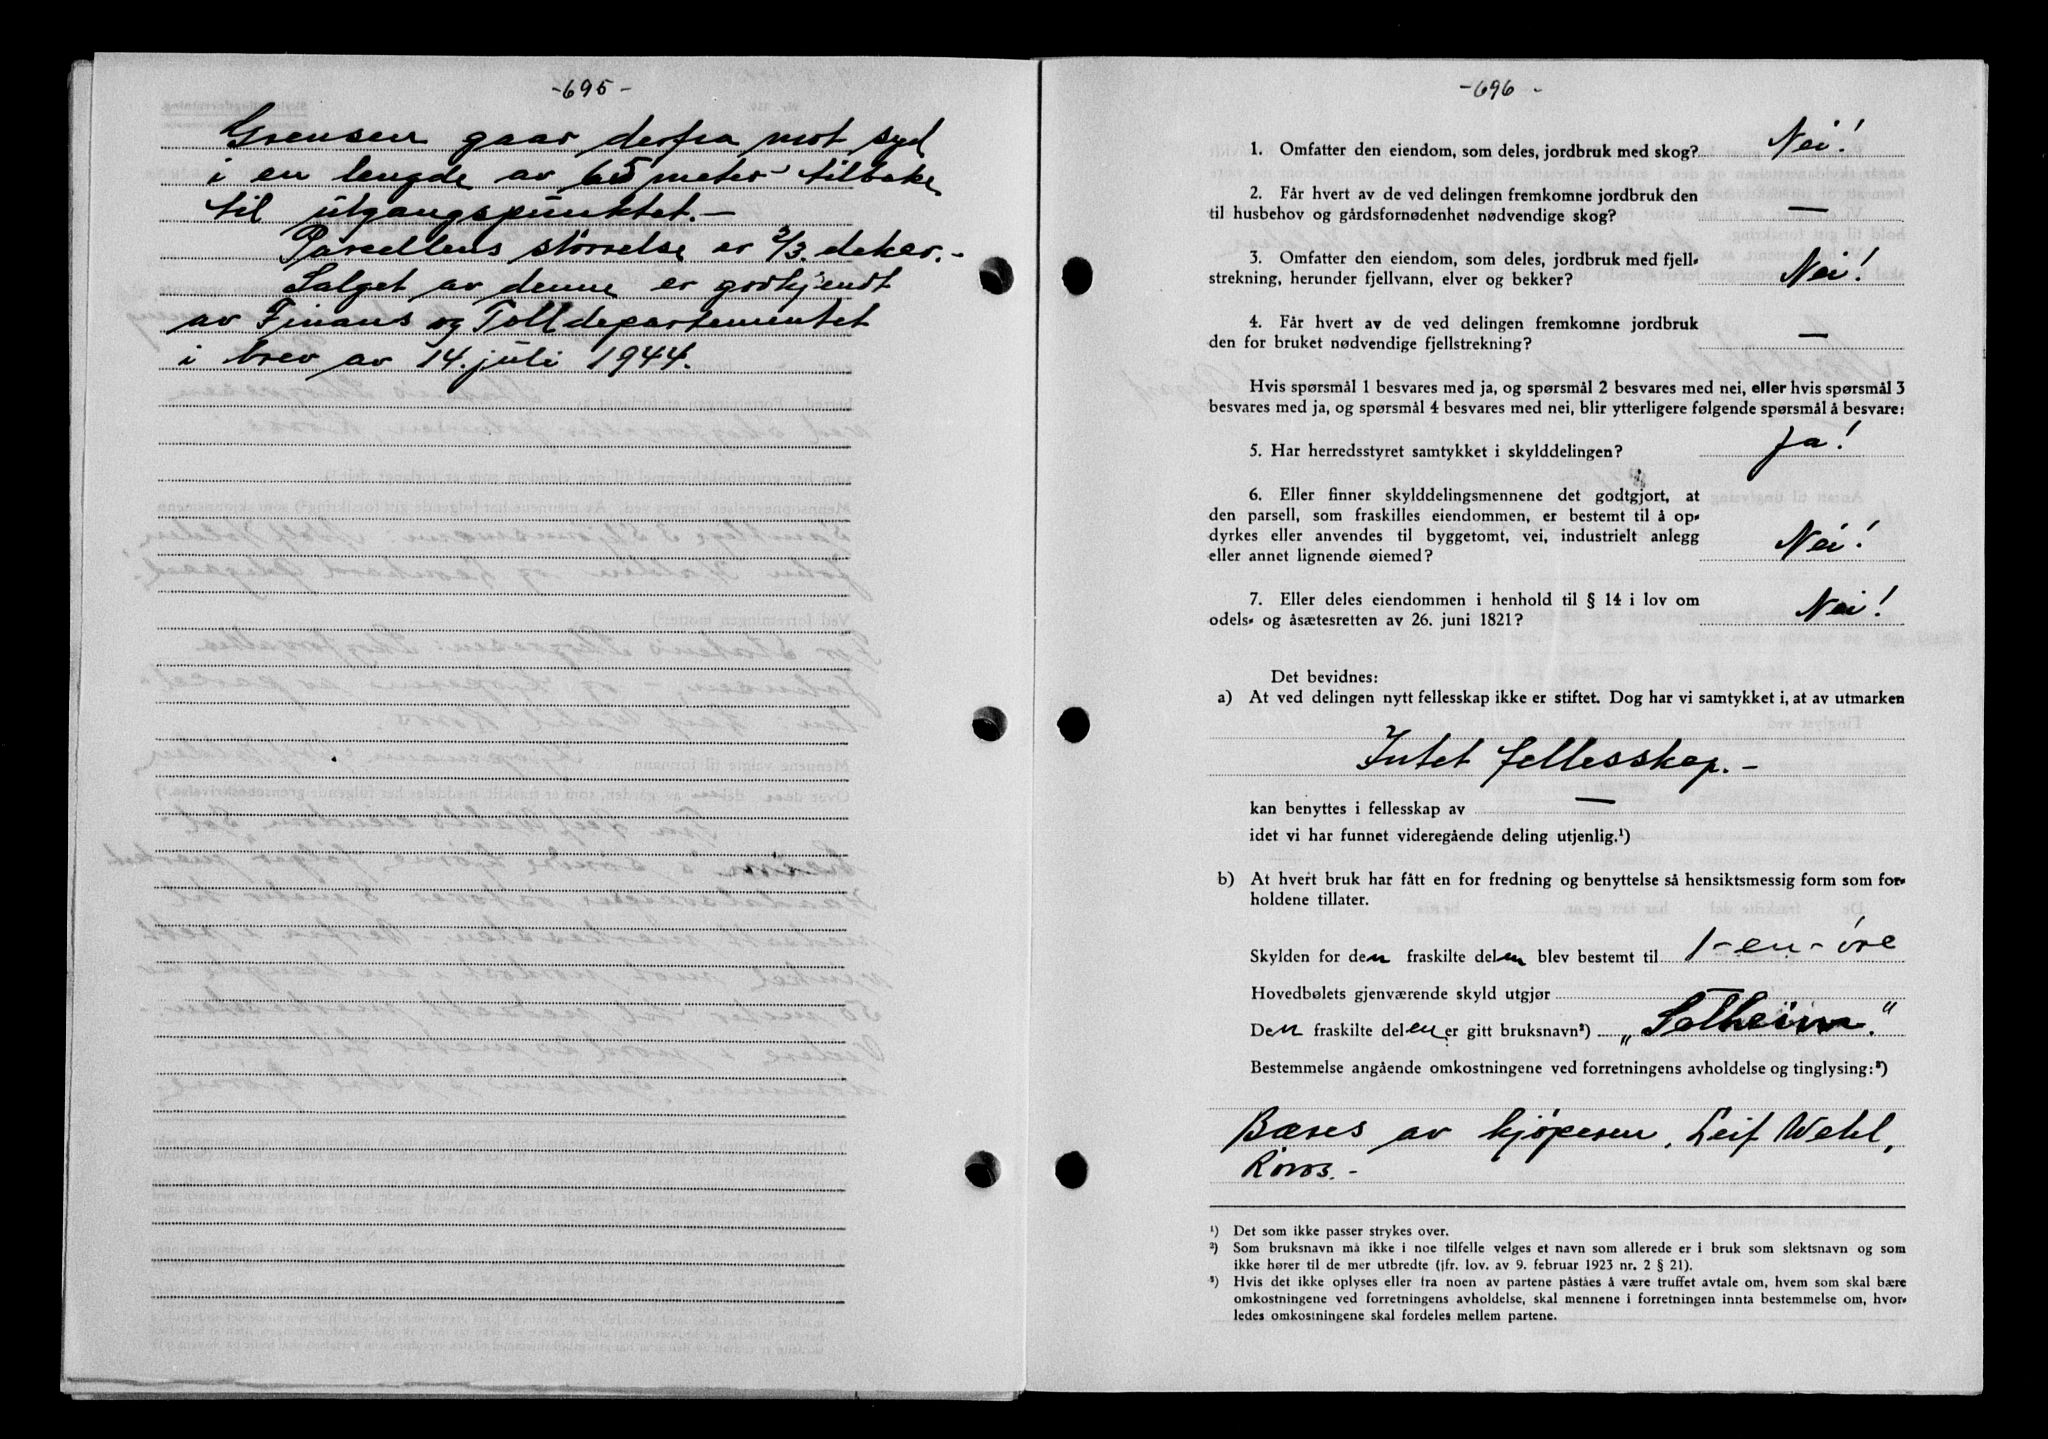 -695-
Grensen gaar derfra mot syd
i en lengde av 65 meter tilbake
til utgangspunktet.-
Parcellens størrelse er 2/3. dekar.-
Salget av denne er godkjendt
av Finans og Tolldepartementet
i brev av 14. juli 1944.
-696-
1. Omfatter den eiendom, som deles, jordbruk med skog? Nei!
2. Får hvert av de ved delingen fremkomne jordbruk den
til husbehov og gårdsfornødenhet nødvendige skog? —
3. Omfatter den eiendom, som deles, jordbruk med fjell-
strekning, herunder fjellvann, elver og bekker? Nei!
4. Får hvert av de ved delingen fremkomne jordbruk
den for bruket nødvendige fjellstrekning? —
Hvis spørsmål 1 besvares med ja, og spørsmål 2 besvares med nei, eller hvis spørsmål 3
besvares med ja, og spørsmål 4 besvares med nei, blir ytterligere følgende spørsmål å besvare:
5. Har herredsstyret samtykket i skylddelingen? Ja!
6. Eller finner skylddelingsmennene det godtgjort, at
den parsell, som fraskilles eiendommen, er bestemt til å op-
dyrkes eller anvendes til byggetomt, vei, industrielt anlegg
eller annet lignende øiemed? Nei!
7. Eller deles eiendommen i henhold til § 14 i lov om
odels- og åsætesretten av 26. juni 1821? Nei!
Det bevidnes:
a) At ved delingen nytt fellesskap ikke er stiftet. Dog har vi samtykket i, at av utmarken
Intet fellesskap.-
kan benyttes i fellesskap av —
idet vi har funnet videregående deling utjenlig.¹)
b) At hvert bruk har fått en for fredning og benyttelse så hensiktsmessig form som for-
holdene tillater.
Skylden for den fraskilte delen blev bestemt til 1-en-øre
Hovedbølets gjenværende skyld utgjør
Den fraskilte delen er gitt bruksnavn²) „Solheim."
Bestemmelse angående omkostningene ved forretningens avholdelse og tinglysing:³)
Bæres av kjøperen, Leif Wahl,
Røros.-
¹) Det som ikke passer strykes over.
²) Som bruksnavn må ikke i noe tilfelle velges et navn som allerede er i bruk som slektsnavn og som
ikke hører til de mer utbredte (jfr. lov. av 9. februar 1923 nr. 2 § 21).
³) Hvis det ikke oplyses eller fra noen av partene påståes å være truffet avtale om, hvem som skal bære
omkostningene ved forretningens avholdelse, skal mennene i forretningen innta bestemmelse om, hvor-
ledes omkostningene skal fordeles mellem partene.